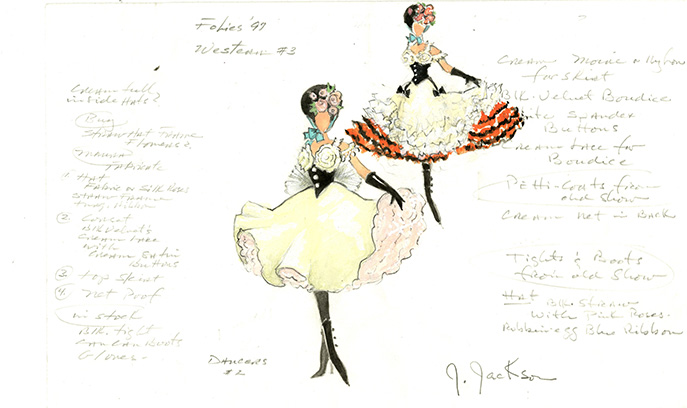 Folies '97
Western #3
Cream tull
inside Hats?
Buy
Straw Hat Frame
Flowers?
Fabricate
1 Hat
Fabric or Silk Roses
Straw Frame
② Corset
Blk Velvets
Cream Lace
with
Cream Satin
Buttons
③ Top Skirt
④ Net Poof
in stock
Blk. tight
Can Can Boots
Gloves-
Dancers
#2
Cream Moire
for skirt
Blk. Velvet Boudice
Spandex
Buttons
Cream Lace for
Boudice
Petti-Coats from
old Show
Cream net in Back
Tights & Boots
from old Show
Hat Blk. Straw
With Pink Roses-
Robbin egg Blue Ribbon
J. Jackson